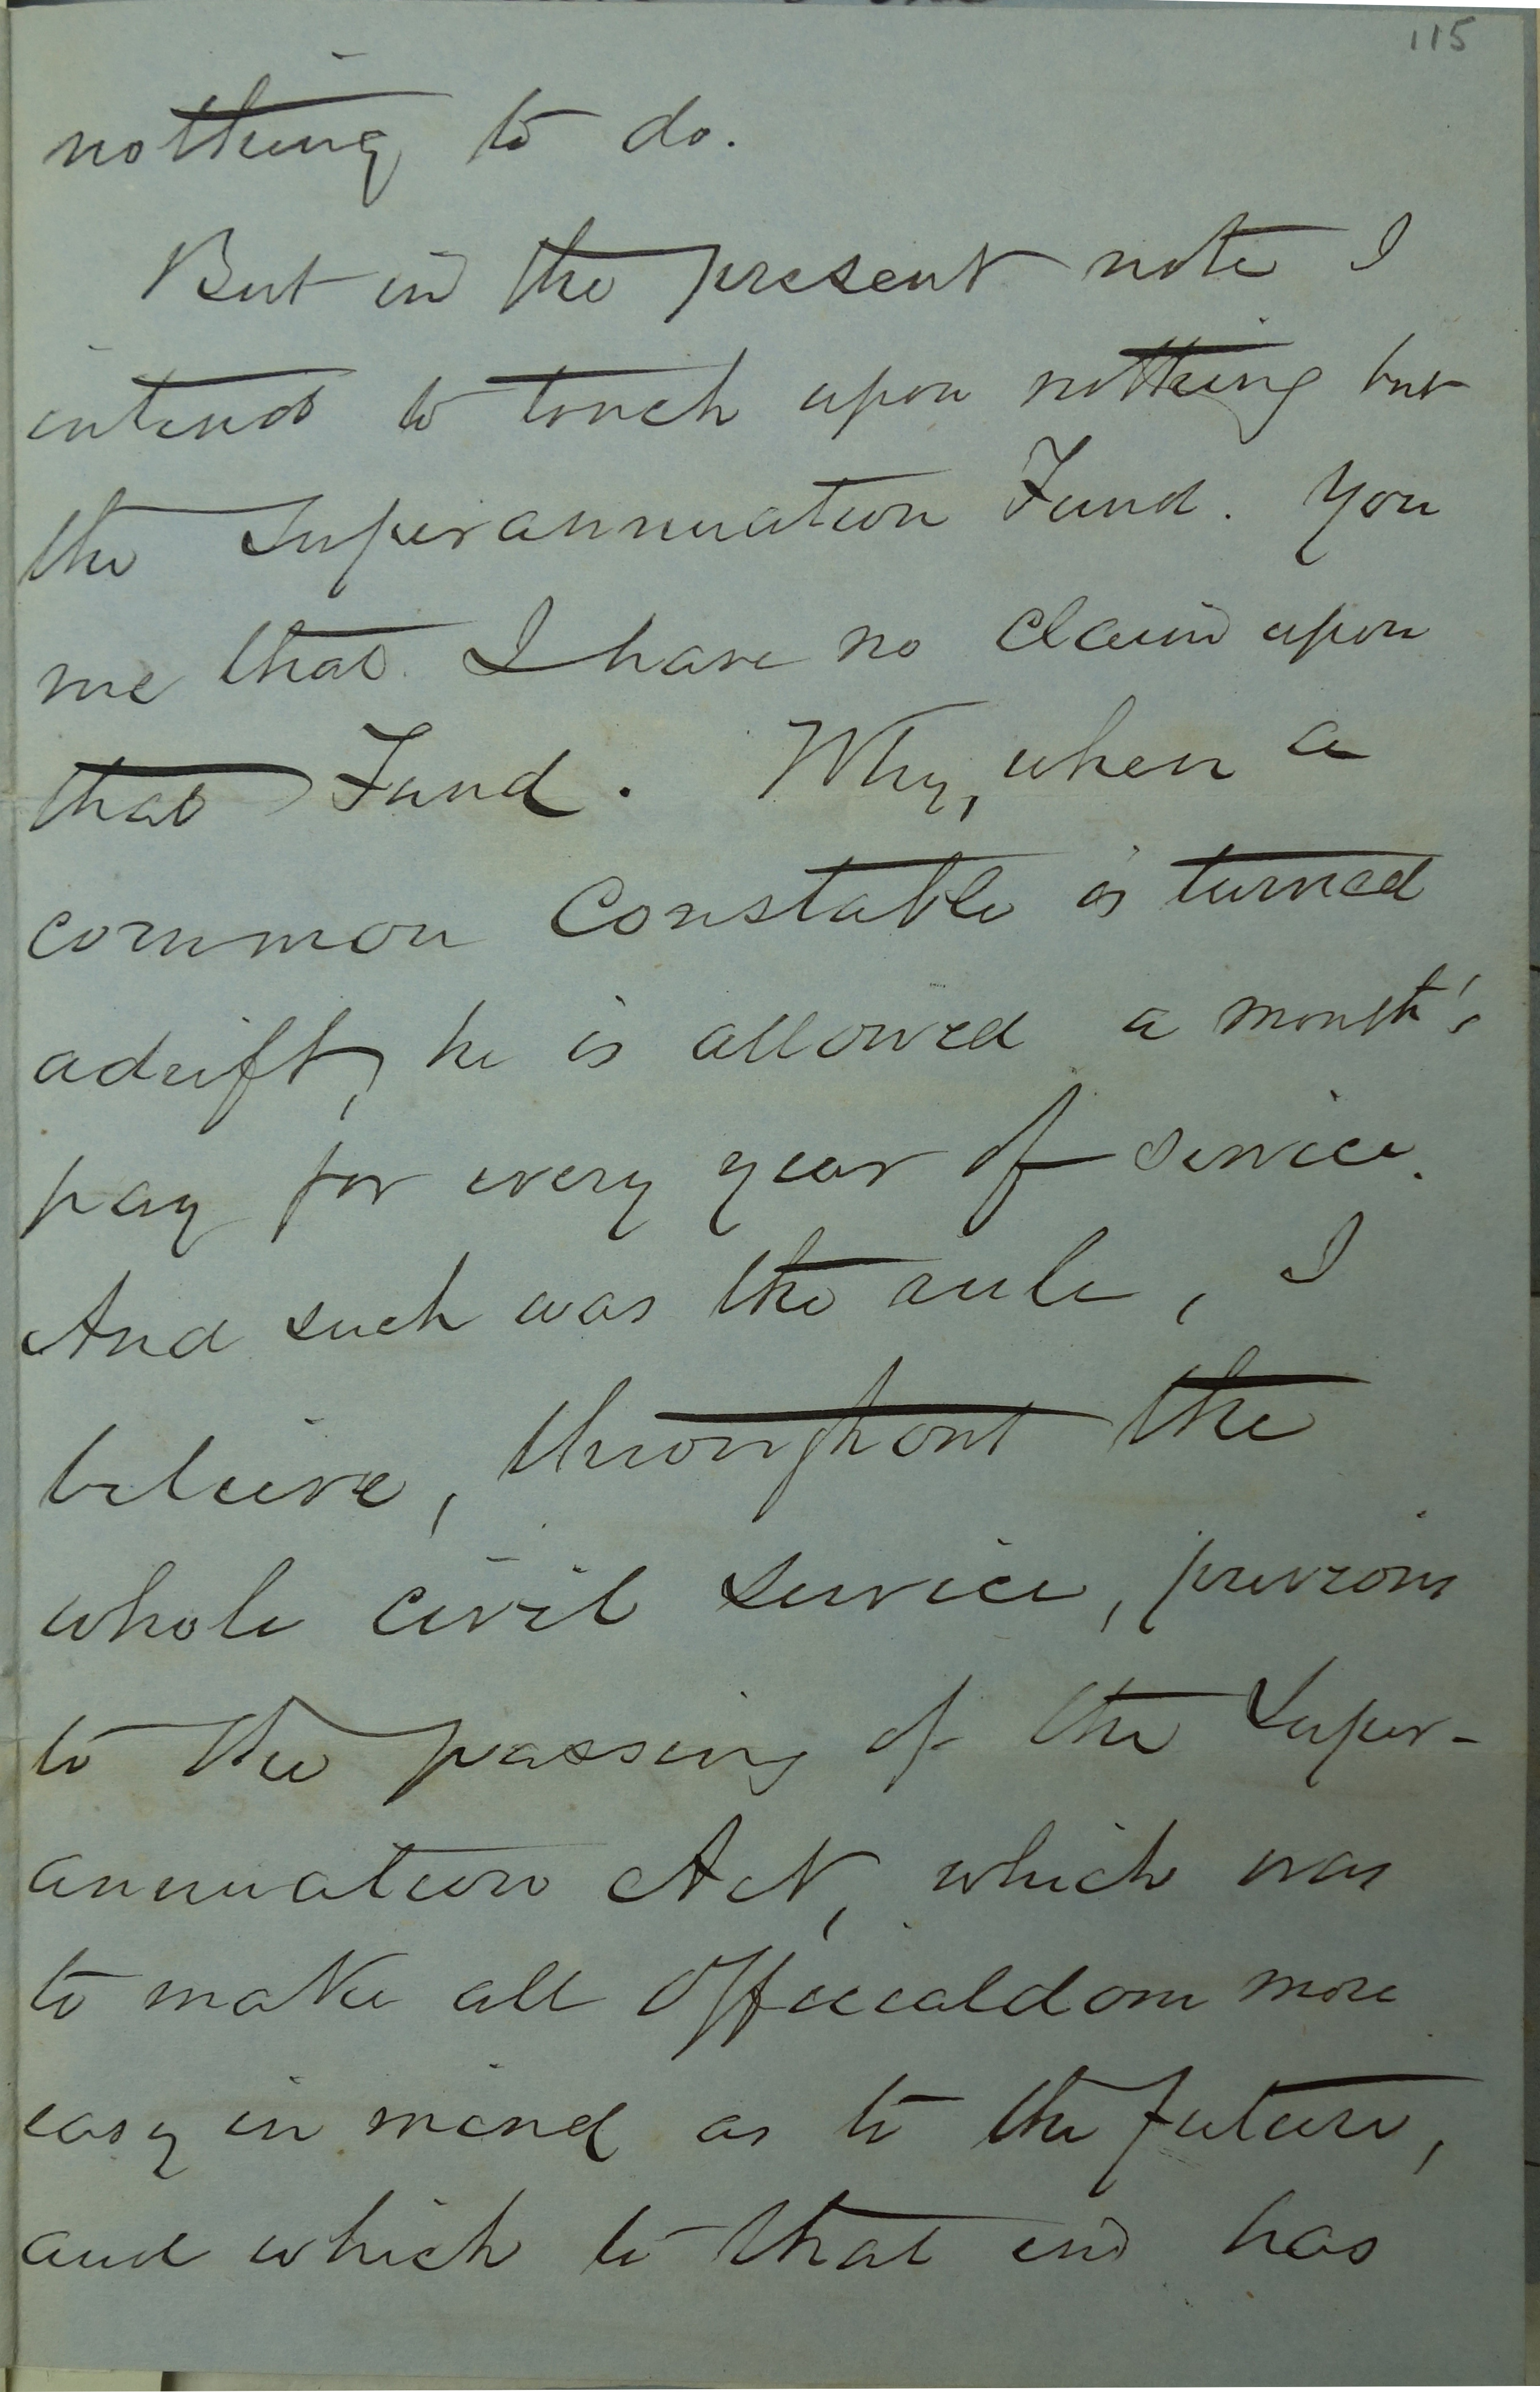 115
nothing to do.
But in the present note I
intend to touch upon nothing but
the Superannuation Fund. You
me that I have no claim upon
that Fund. Why, when a
common Constable is turned
adrift, he is allowed a month's
pay for every year of service.
And such was the rule, I
believe, throughout the
whole civil service, previous
to the passing of the Super-
annuation Act, which was
to make all Officialdom more
easy in mind as to the future,
and which to that end has